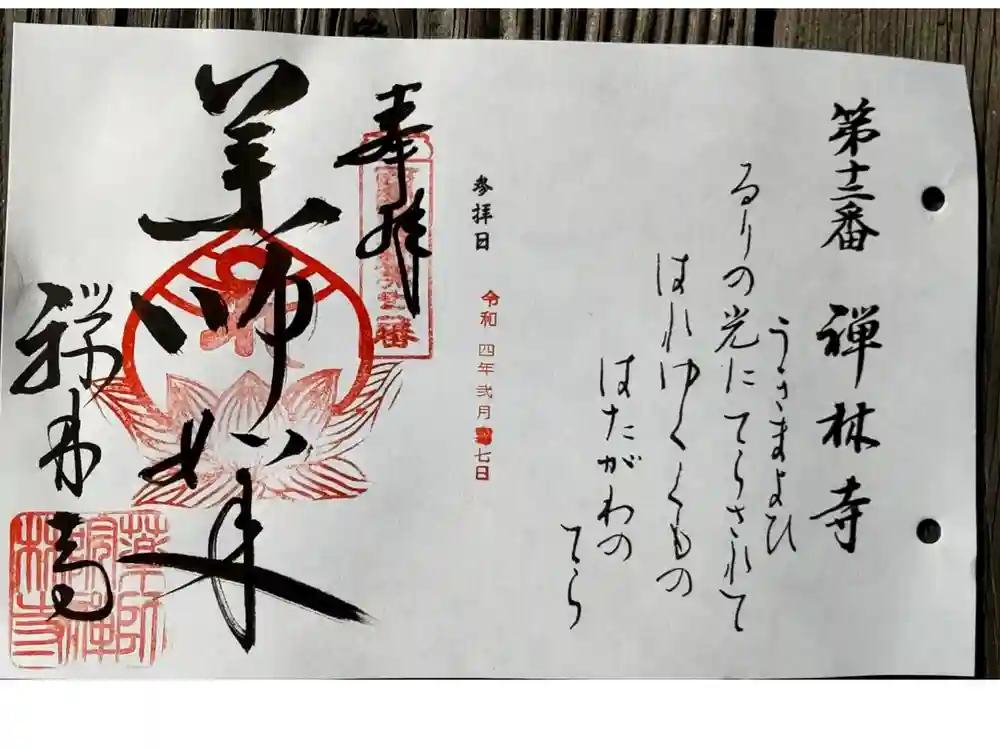 第十二番 禅林寺
うきまよひ
るりの光にてらされて
はれゆくくもの
はたがわの
てら
参拝日
令和 四年 弐月 七日
奉拝
薬師如来
禅林寺